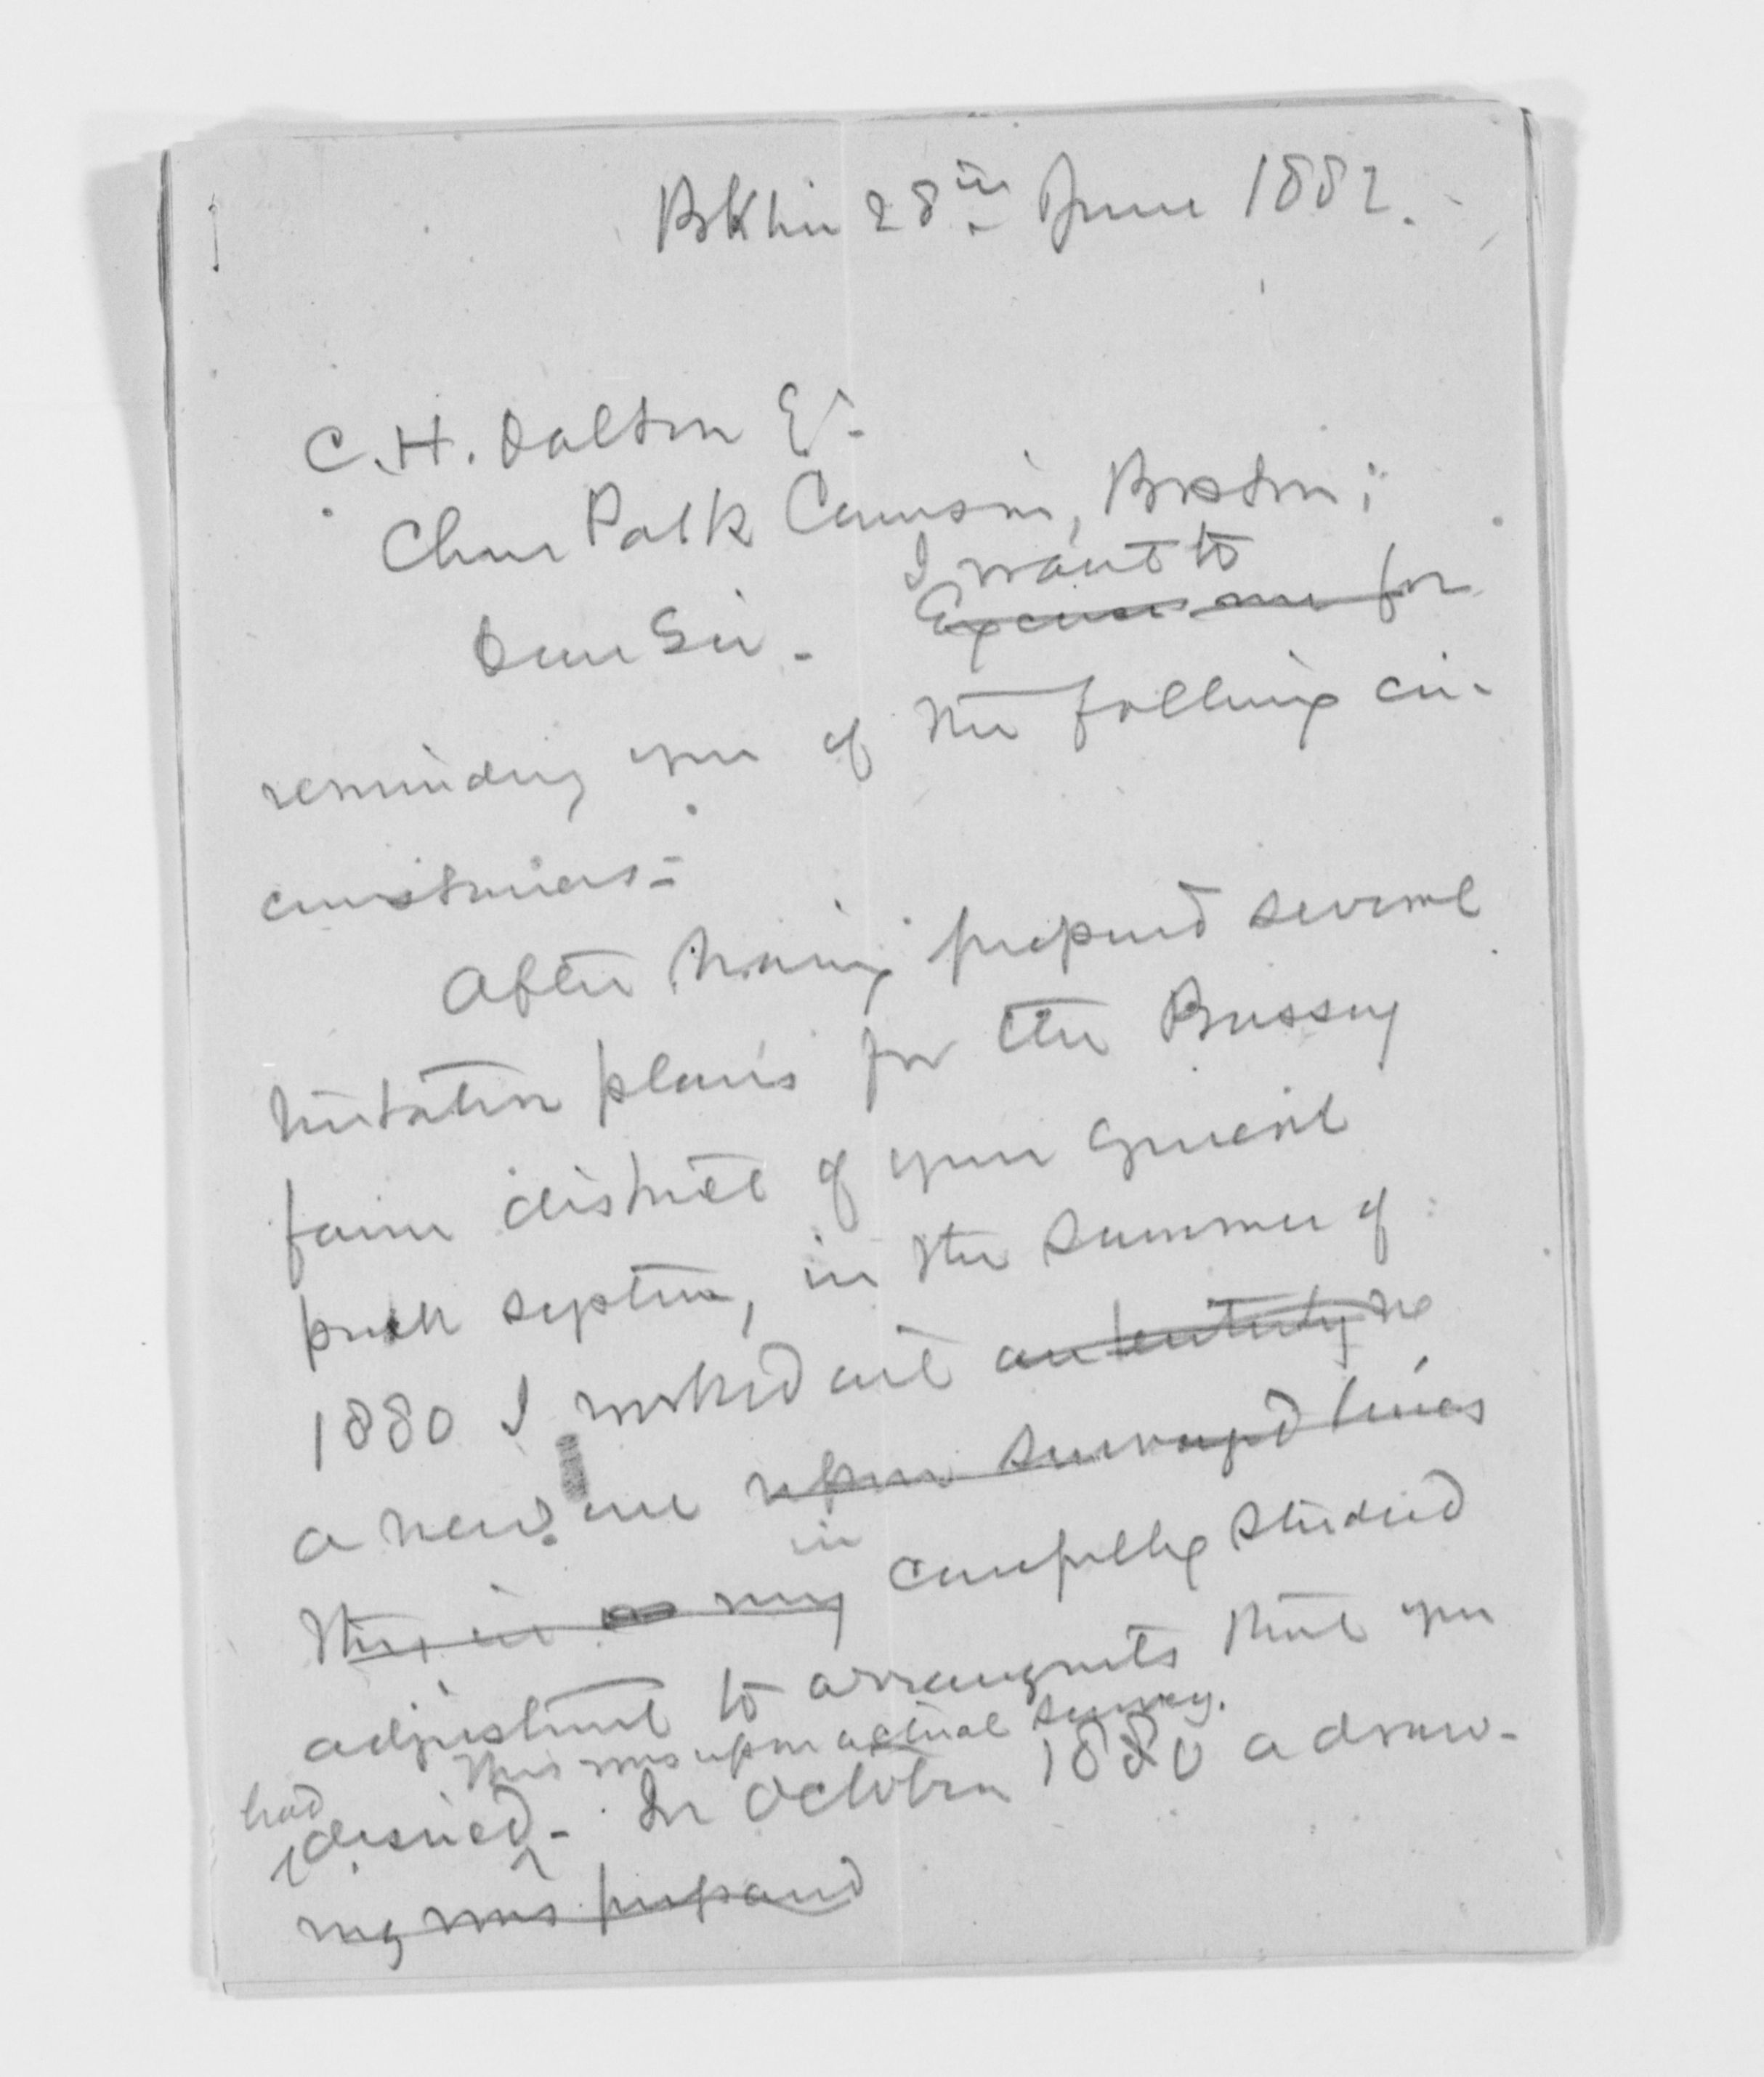 Bkline 28th June 1882.
C.H. Dalton Es.
Chmn Park Commsn, Boston;
I want to
Dear Sir. Excuse me for
reminding you of the following cir-
cumstances:
After having prepared several
tentative plans for the Bussey
farm district of your general
park system, in the summer of
1880 I worked out an entirely ne
a new one upon surveyed lines
in
this in as my carefully studied
adjustment to arrangements that you
This was upon actual survey.
had desired. In October 1880 a draw-
ing was prepared